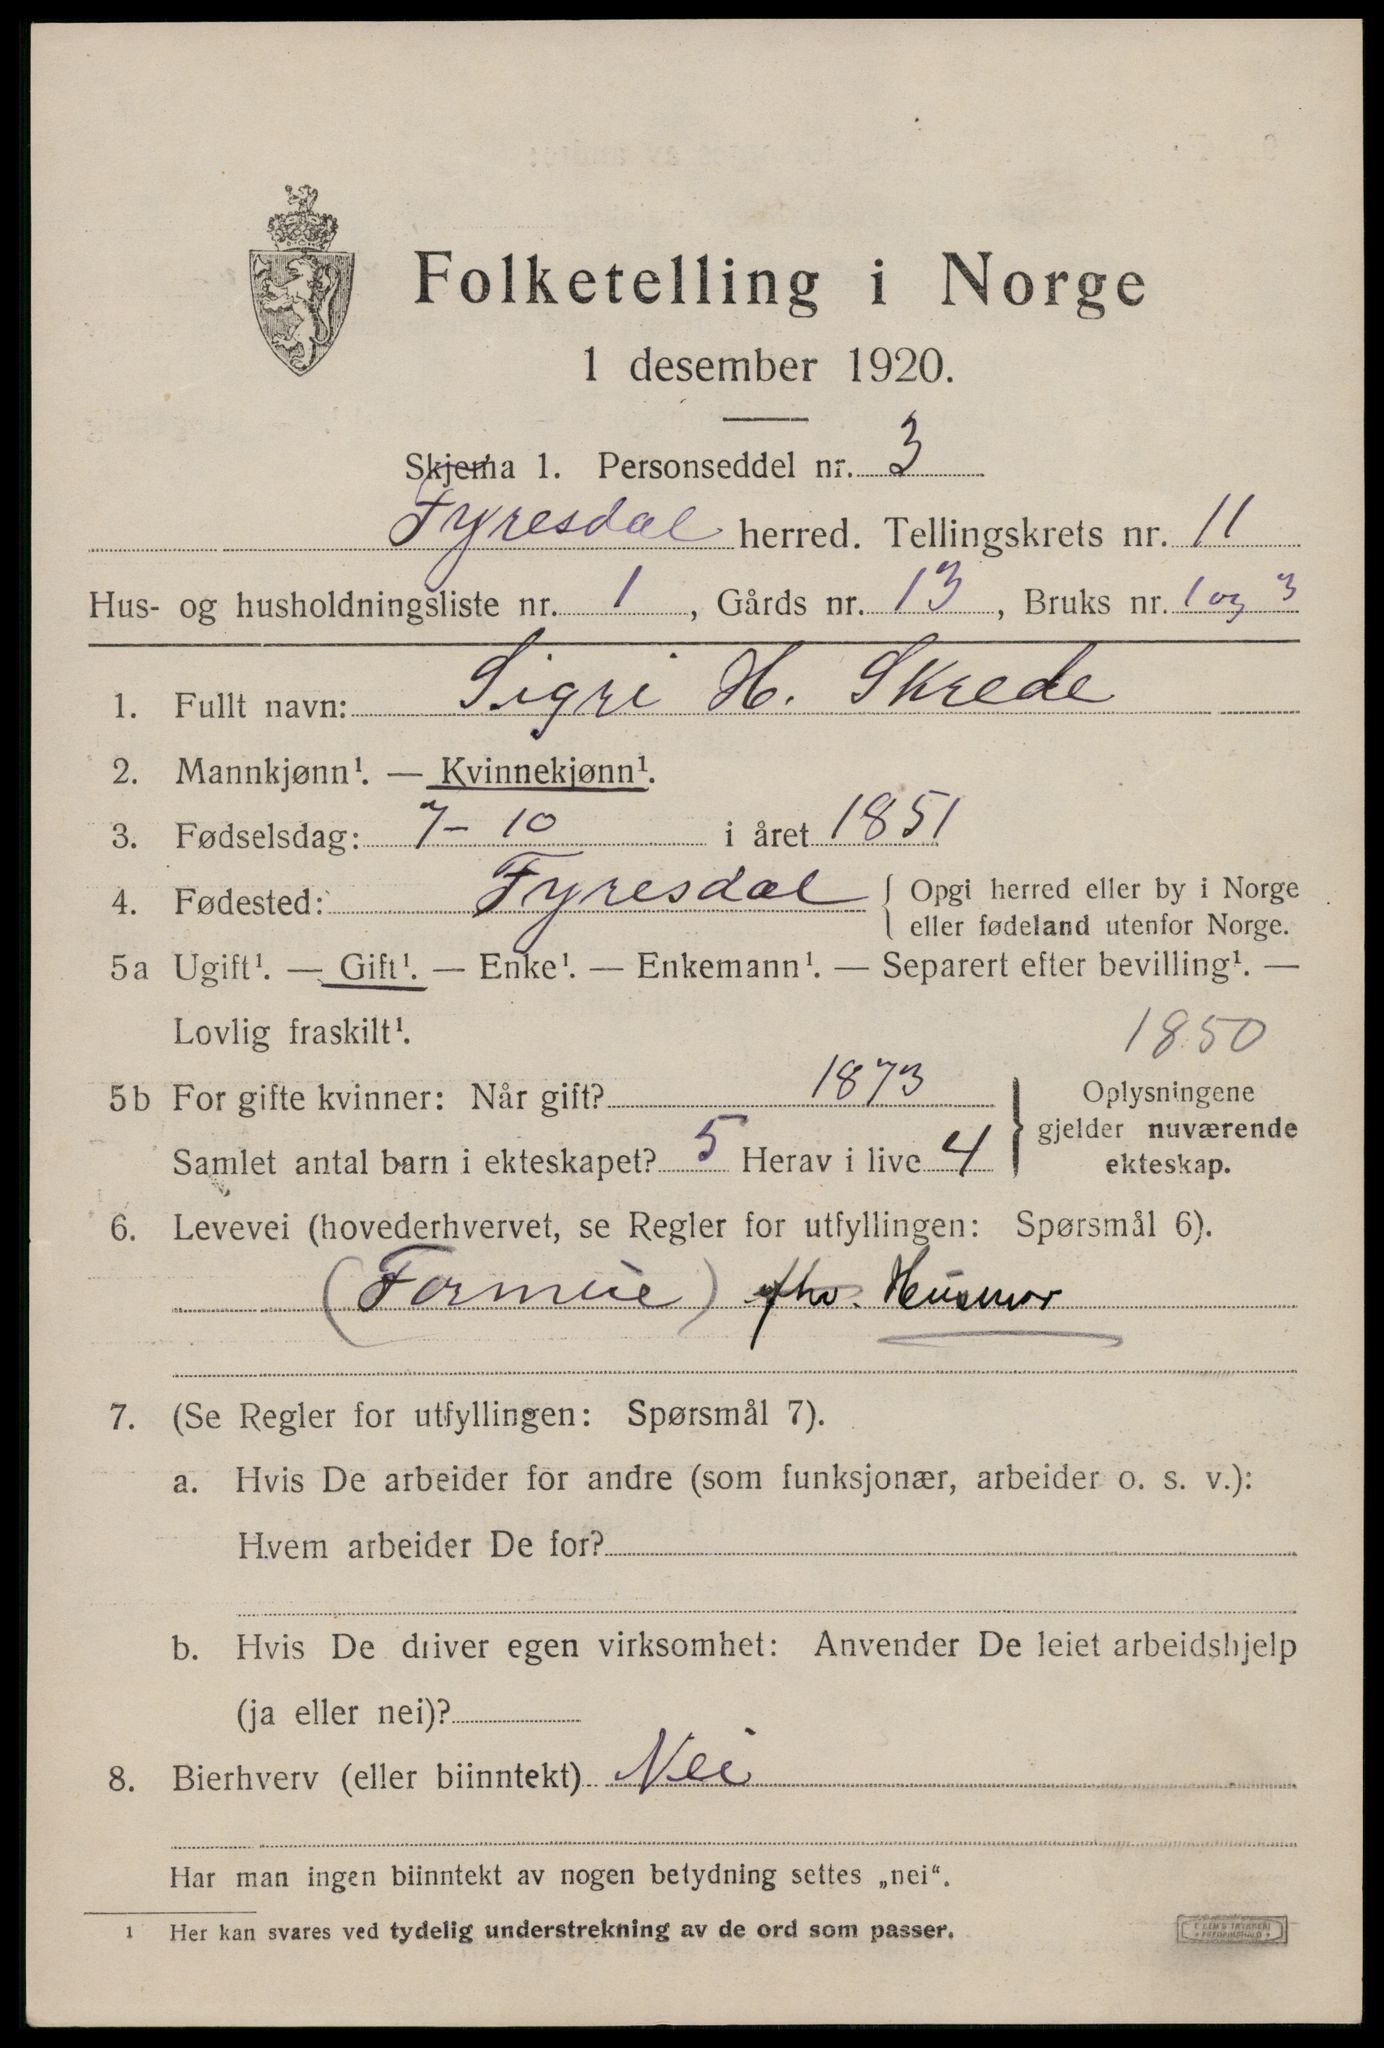 Folketelling i Norge
1 desember 1920.
Skjema 1. Personseddel nr. 3
Fyresdal herred. Tellingskrets nr. 11
Hus- og husholdningsliste nr. 1, Gårds nr. 13, Bruks nr. 1 og 3
1. Fullt navn: Sigri H. Skrede
2. Mannkjønn¹. — Kvinnekjønn¹.
3. Fødselsdag: 7-10 i året 1851
4. Fødested: Fyresdal { Opgi herred eller by i Norge
eller fødeland utenfor Norge.
5a Ugift¹. — Gift¹. — Enke¹. — Enkemann¹. — Separert efter bevilling¹. —
Lovlig fraskilt¹.
1850
5b For gifte kvinner: Når gift? 1873 } Oplysningene
gjelder nuværende
Samlet antal barn i ekteskapet? 5 Herav i live 4
ekteskap.
6. Levevei (hovederhvervet, se Regler for utfyllingen: Spørsmål 6).
Husmor
7. (Se Regler for utfyllingen: Spørsmål 7).
a. Hvis De arbeider for andre (som funksjonær, arbeider o. s. v.):
Hvem arbeider De for?
b. Hvis De driver egen virksomhet: Anvender De leiet arbeidshjelp
(ja eller nei)?
8. Bierhverv (eller biinntekt) Nei
Har man ingen biinntekt av nogen betydning settes „nei“.
¹ Her kan svares ved tydelig understrekning av de ord som passer.